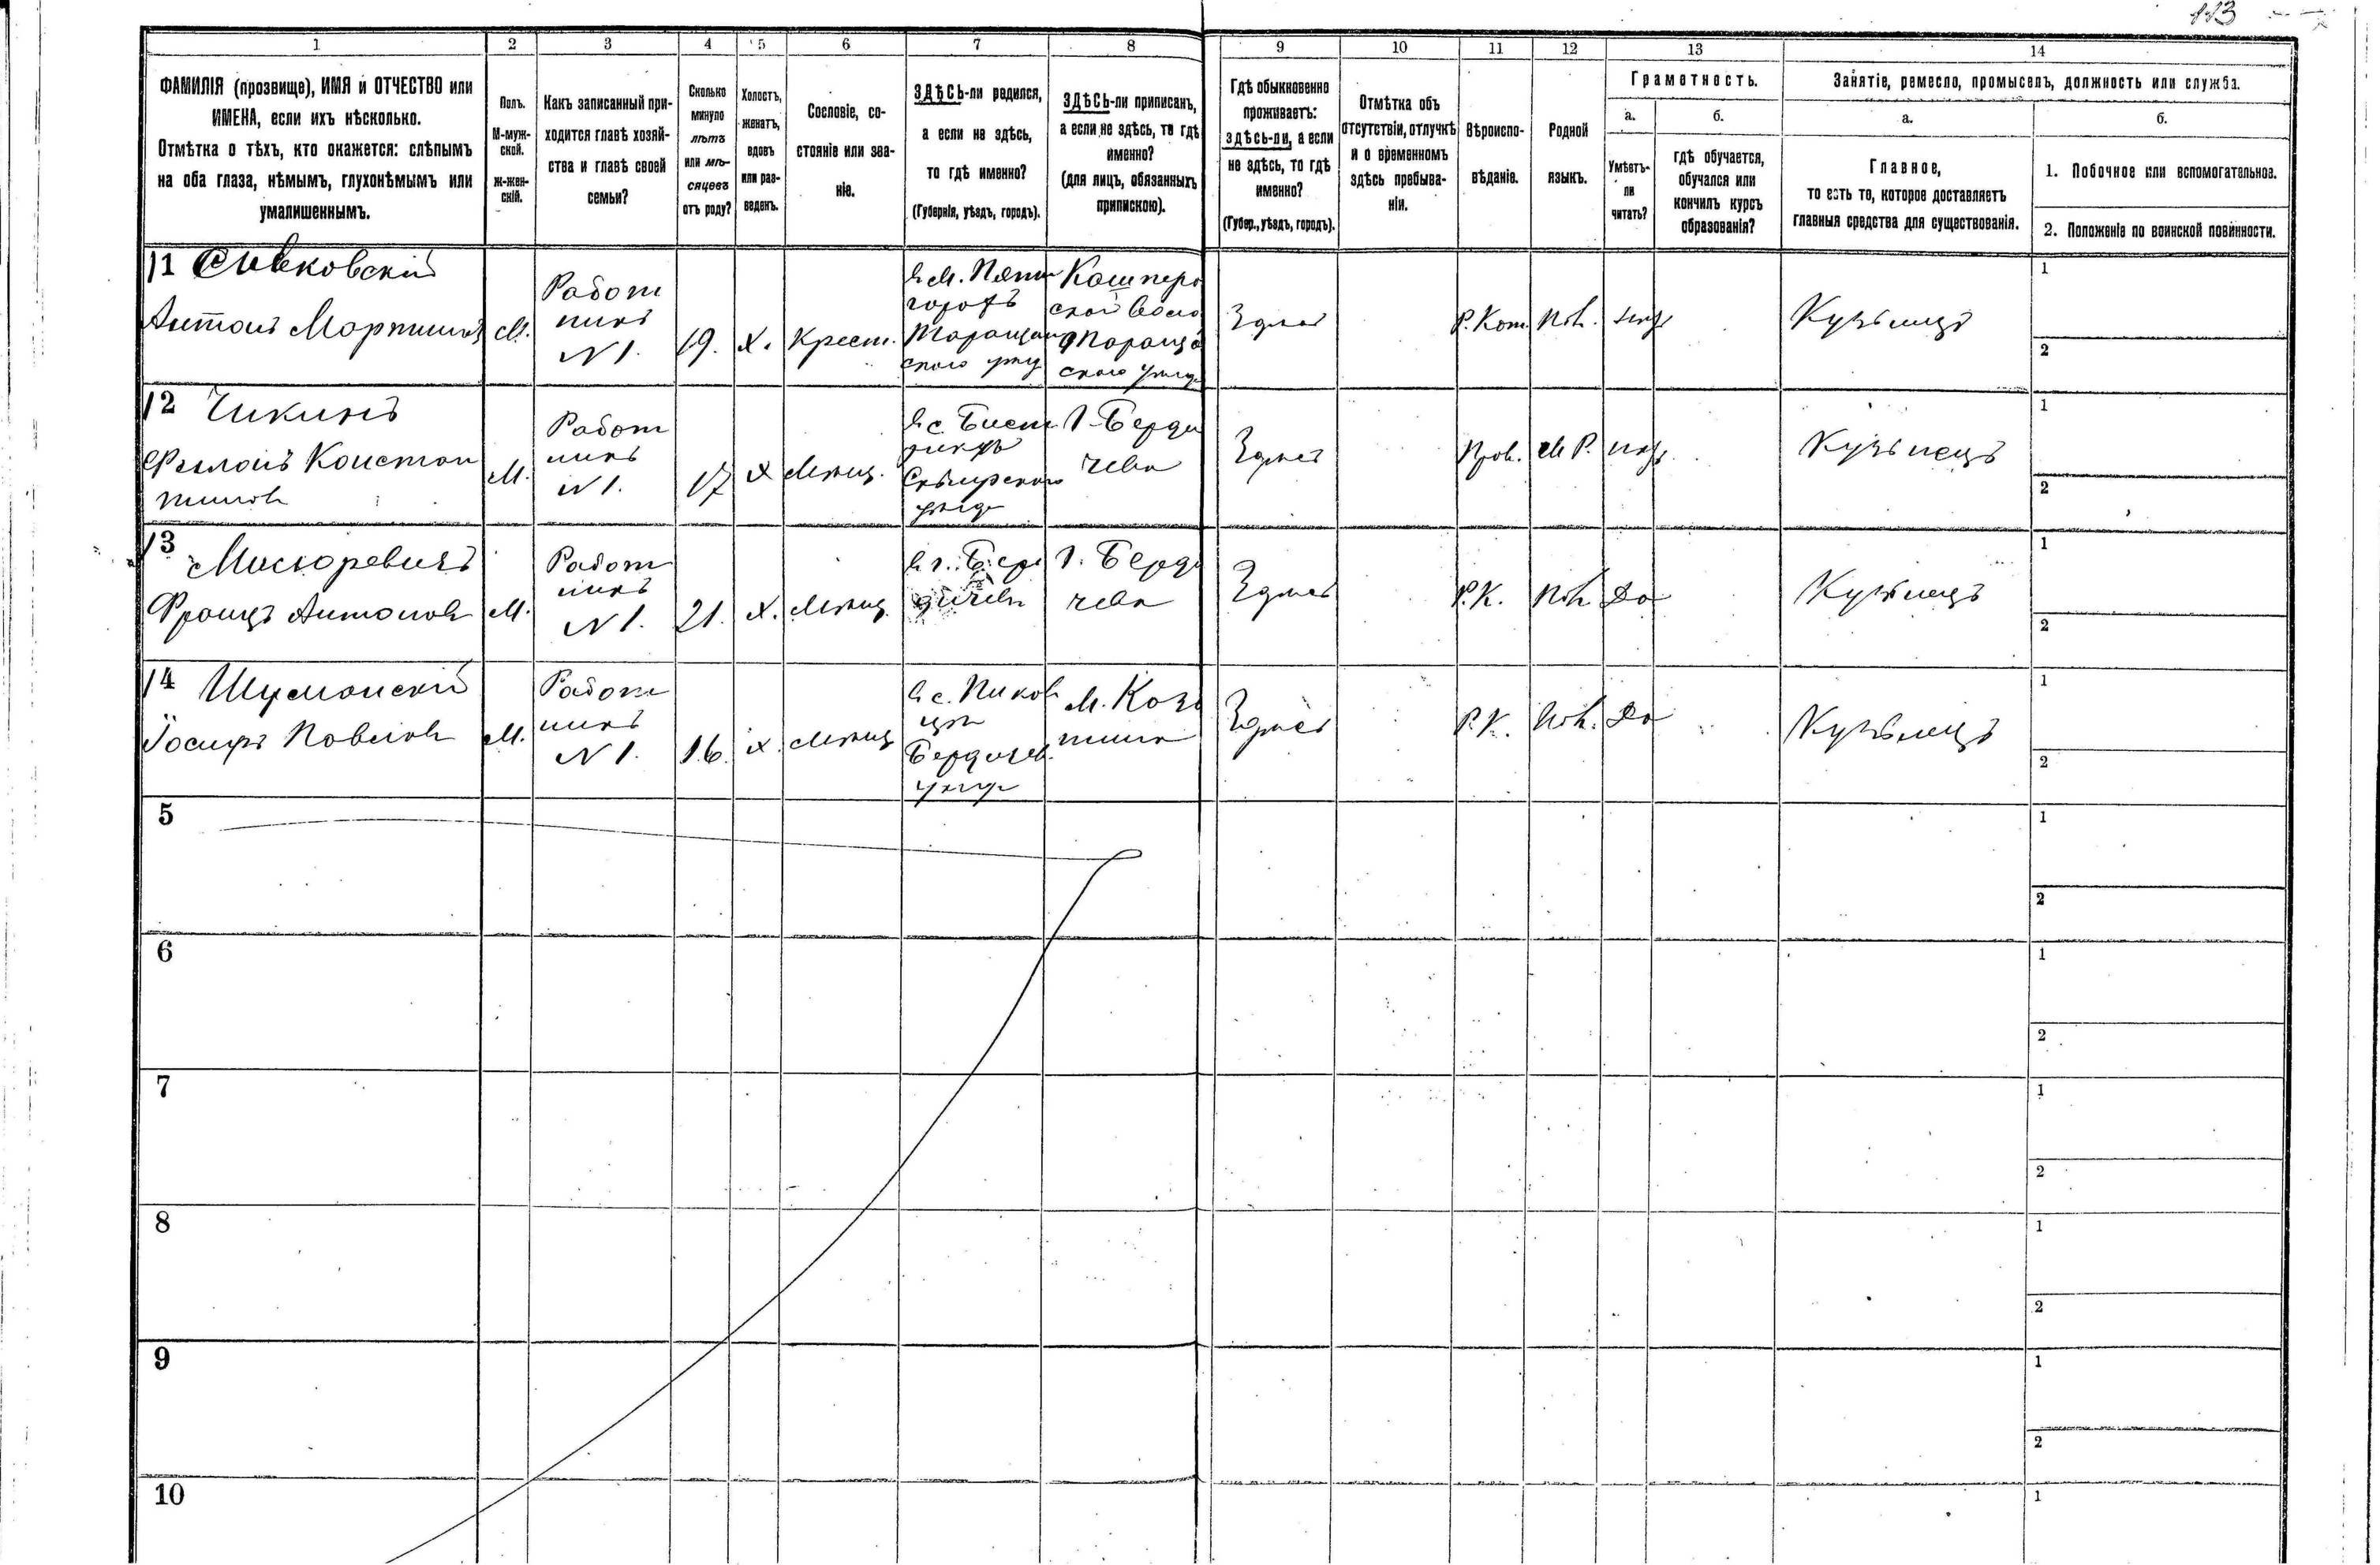 113
1 2 3 4 5 6 7 8 9 10 11 12 13 14
ФАМИЛІЯ (прозвище), ИМЯ и ОТЧЕСТВО или
ИМЕНА, если ихъ нѣсколько.
Отмѣтка о тѣхъ, кто окажется: слѣпымъ
на оба глаза, нѣмымъ, глухонѣмымъ или
умалишеннымъ.
Полъ.
М-муж-
ской.
ж-жен-
скій.
Какъ записанный при-
ходится главѣ хозяй-
ства и главѣ своей
семьи?
Сколько
минуло
лѣтъ
или мѣ-
сяцевъ
отъ роду?
Холостъ,
женатъ,
вдовъ
или раз-
веденъ.
Сословіе, со-
стояніе или зва-
ніе.
ЗДѢСЬ-ли родился,
а если не здѣсь,
то гдѣ именно?
(Губернія, уѣздъ, городъ).
ЗДѢСЬ-ли приписанъ,
а если не здѣсь, то гдѣ
именно?
(для лицъ, обязанныхъ
припискою).
Гдѣ обыкновенно
проживаетъ:
здѣсь-ли, а если
не здѣсь, то гдѣ
именно?
(Губер., уѣздъ, городъ).
Отмѣтка объ
отсутствіи, отлучкѣ
и о временномъ
здѣсь пребыва-
ніи.
Вѣроиспо-
вѣданіе.
Родной
языкъ.
Грамотность.
а.
Умѣетъ-
ли
читать?
б.
гдѣ обучается,
обучался или
кончилъ курсъ
образованія?
Занятіе, ремесло, промыселъ, должность или служба.
а.
Главное,
то есть то, которое доставляетъ
главныя средства для существованія.
б.
1. Побочное или вспомогательное.
2. Положеніе по воинской повинности.
11 Сивковскій
Антонъ Мартиновъ
М.
Работ
никъ
№ 1.
19.
Х.
Крест.
В м. Пяти
горахъ
Таращан
скаго
Кашперо
ской Воло
Тараща
скаго
Здѣсь
Р. Кат.
Пол.
Кузнецъ
1
2
12 Чикинъ
Константи
новъ
М.
Работ
никъ
№ 1.
17
Х
Мѣщ.
В с. Бист
рикѣ
Сквирскаго
Г. Берди
чева
Здѣсь
Прав.
М Р.
Кузнецъ
1
2
13 Мисюревичъ
Францъ Антоновъ
М.
Работ
никъ
№ 1.
21.
Х.
Мѣщ.
В г. Бер
дичевѣ
Г. Берди
чева
Здѣсь
Р. К.
Пол.
Да
Кузнецъ
1
2
14 Шуманскій
Іосифъ Павловъ
М.
Работ
никъ
№ 1.
16.
Х.
Мѣщ
В с. Пиков
цѣ
Бердичев.
М. Коза
тина
Здѣсь
Р. К.
Пол.
Да
Кузнецъ
1
2
5
1
2
6
1
2
7
1
2
8
1
2
9
1
2
10
1